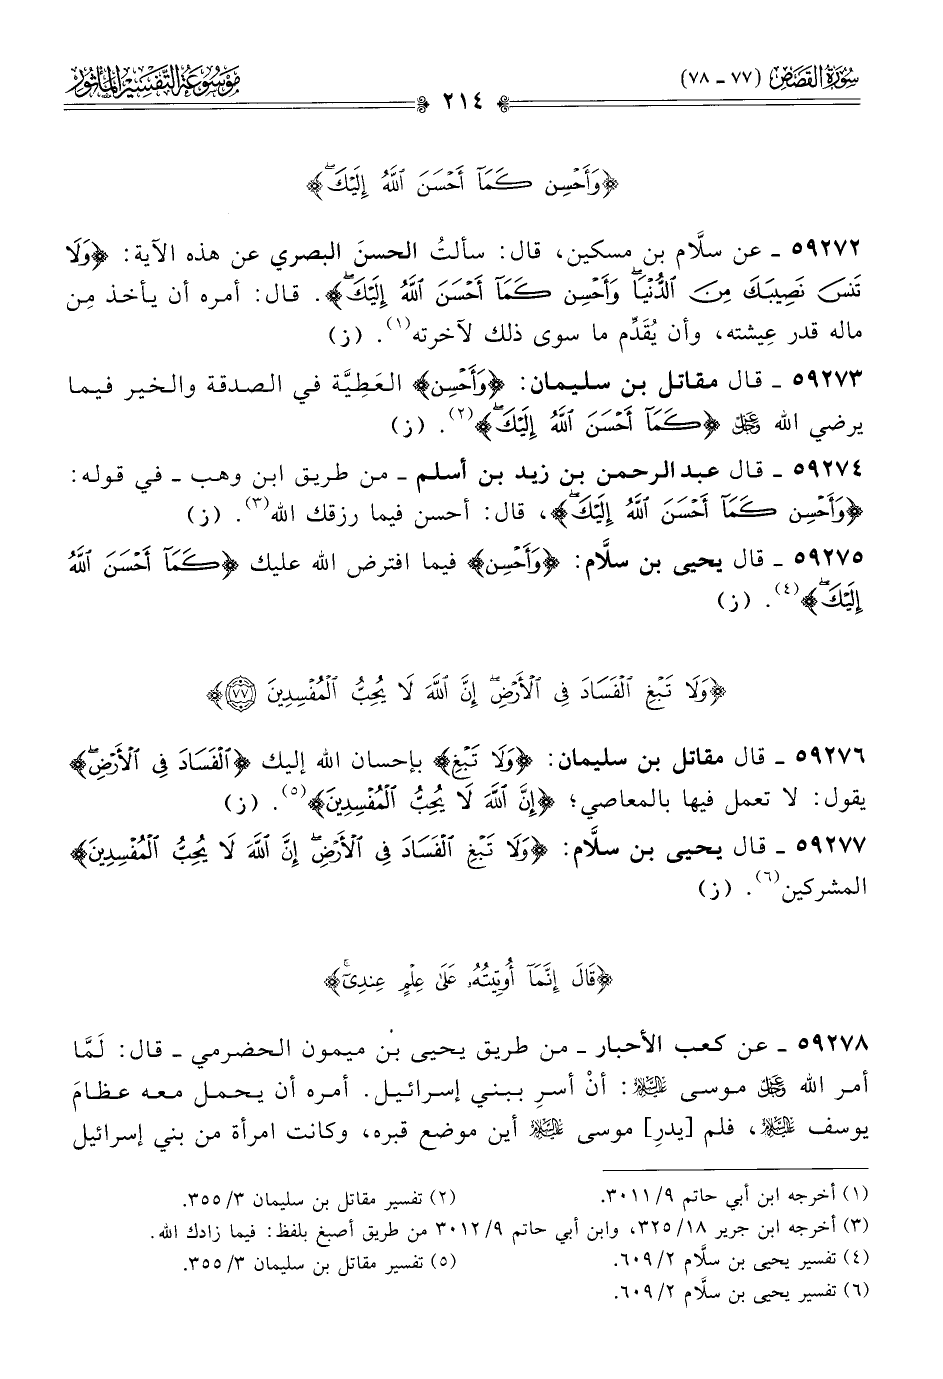 سُورَةُ القَصَصِ (٧٧ - ٧٨)
٢١٤
مَوْسُوعَةُ التَّفْسِيرِ المَأْثُور
﴿وَأَحْسِن كَمَآ أَحْسَنَ ٱللَّهُ إِلَيْكَۖ﴾
٥٩٢٧٢ ـ عن سلَّام بن مسكين، قال: سألتُ الحسنَ البصري عن هذه الآية: ﴿وَلَا
تَنسَ نَصِيبَكَ مِنَ ٱلدُّنْيَاۖ وَأَحْسِن كَمَآ أَحْسَنَ ٱللَّهُ إِلَيْكَۖ﴾. قال: أمره أن يأخذ مِن
ماله قدر عِيشته، وأن يُقَدِّم ما سوى ذلك لآخرته(١). (ز)
٥٩٢٧٣ ـ قال مقاتل بن سليمان: ﴿وَأَحْسِن﴾ العَطِيَّة في الصدقة والخير فيما
يرضي الله عز وجل ﴿كَمَآ أَحْسَنَ ٱللَّهُ إِلَيْكَۖ﴾(٢). (ز)
٥٩٢٧٤ ـ قال عبد الرحمن بن زيد بن أسلم ـ من طريق ابن وهب ـ في قوله:
﴿وَأَحْسِن كَمَآ أَحْسَنَ ٱللَّهُ إِلَيْكَۖ﴾، قال: أحسن فيما رزقك الله(٣). (ز)
٥٩٢٧٥ ـ قال يحيى بن سلَّام: ﴿وَأَحْسِن﴾ فيما افترض الله عليك ﴿كَمَآ أَحْسَنَ ٱللَّهُ
إِلَيْكَۖ﴾(٤). (ز)
﴿وَلَا تَبْغِ ٱلْفَسَادَ فِى ٱلْأَرْضِۖ إِنَّ ٱللَّهَ لَا يُحِبُّ ٱلْمُفْسِدِينَ ٧٧﴾
٥٩٢٧٦ ـ قال مقاتل بن سليمان: ﴿وَلَا تَبْغِ﴾ بإحسان الله إليك ﴿ٱلْفَسَادَ فِى ٱلْأَرْضِۖ﴾
يقول: لا تعمل فيها بالمعاصي؛ ﴿إِنَّ ٱللَّهَ لَا يُحِبُّ ٱلْمُفْسِدِينَ﴾(٥). (ز)
٥٩٢٧٧ ـ قال يحيى بن سلَّام: ﴿وَلَا تَبْغِ ٱلْفَسَادَ فِى ٱلْأَرْضِۖ إِنَّ ٱللَّهَ لَا يُحِبُّ ٱلْمُفْسِدِينَ﴾
المشركين(٦). (ز)
﴿قَالَ إِنَّمَآ أُوتِيتُهُۥ عَلَىٰ عِلْمٍ عِندِىٓۚ﴾
٥٩٢٧٨ ـ عن كعب الأحبار ـ من طريق يحيى بن ميمون الحضرمي ـ قال: لَمَّا
أمر الله عز وجل موسى عليه السلام: أنْ أسرِ ببني إسرائيل. أمره أن يحمل معه عظامَ
يوسف عليه السلام، فلم [يدرِ] موسى عليه السلام أين موضع قبره، وكانت امرأة من بني إسرائيل
(١) أخرجه ابن أبي حاتم ٩/ ٣٠١١.
(٢) تفسير مقاتل بن سليمان ٣/ ٣٥٥.
(٣) أخرجه ابن جرير ١٨/ ٣٢٥، وابن أبي حاتم ٩/ ٣٠١٢ من طريق أصبغ بلفظ: فيما زادك الله.
(٤) تفسير يحيى بن سلَّام ٢/ ٦٠٩.
(٥) تفسير مقاتل بن سليمان ٣/ ٣٥٥.
(٦) تفسير يحيى بن سلَّام ٢/ ٦٠٩.